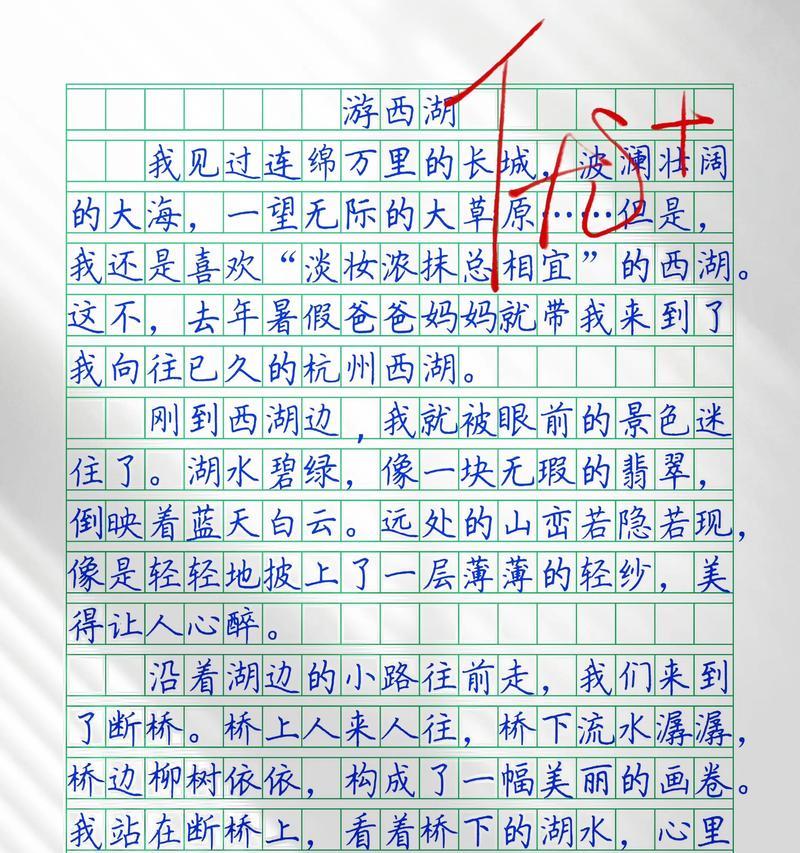 游西湖
我见过连绵万里的长城，波澜壮阔
的大海，一望无际的大草原……但是，
我还是喜欢“淡妆浓抹总相宜”的西湖。
这不，去年暑假爸爸妈妈就带我来到了
我向往已久的杭州西湖。
刚到西湖边，我就被眼前的景色迷
住了。湖水碧绿，像一块无瑕的翡翠，
倒映着蓝天白云。远处的山峦若隐若现，
像是轻轻地披上了一层薄薄的轻纱，美
得让人心醉。
沿着湖边的小路往前走，我们来到
了断桥。桥上人来人往，桥下流水潺潺，
桥边柳树依依，构成了一幅美丽的画卷。
我站在断桥上，看着桥下的湖水，心里